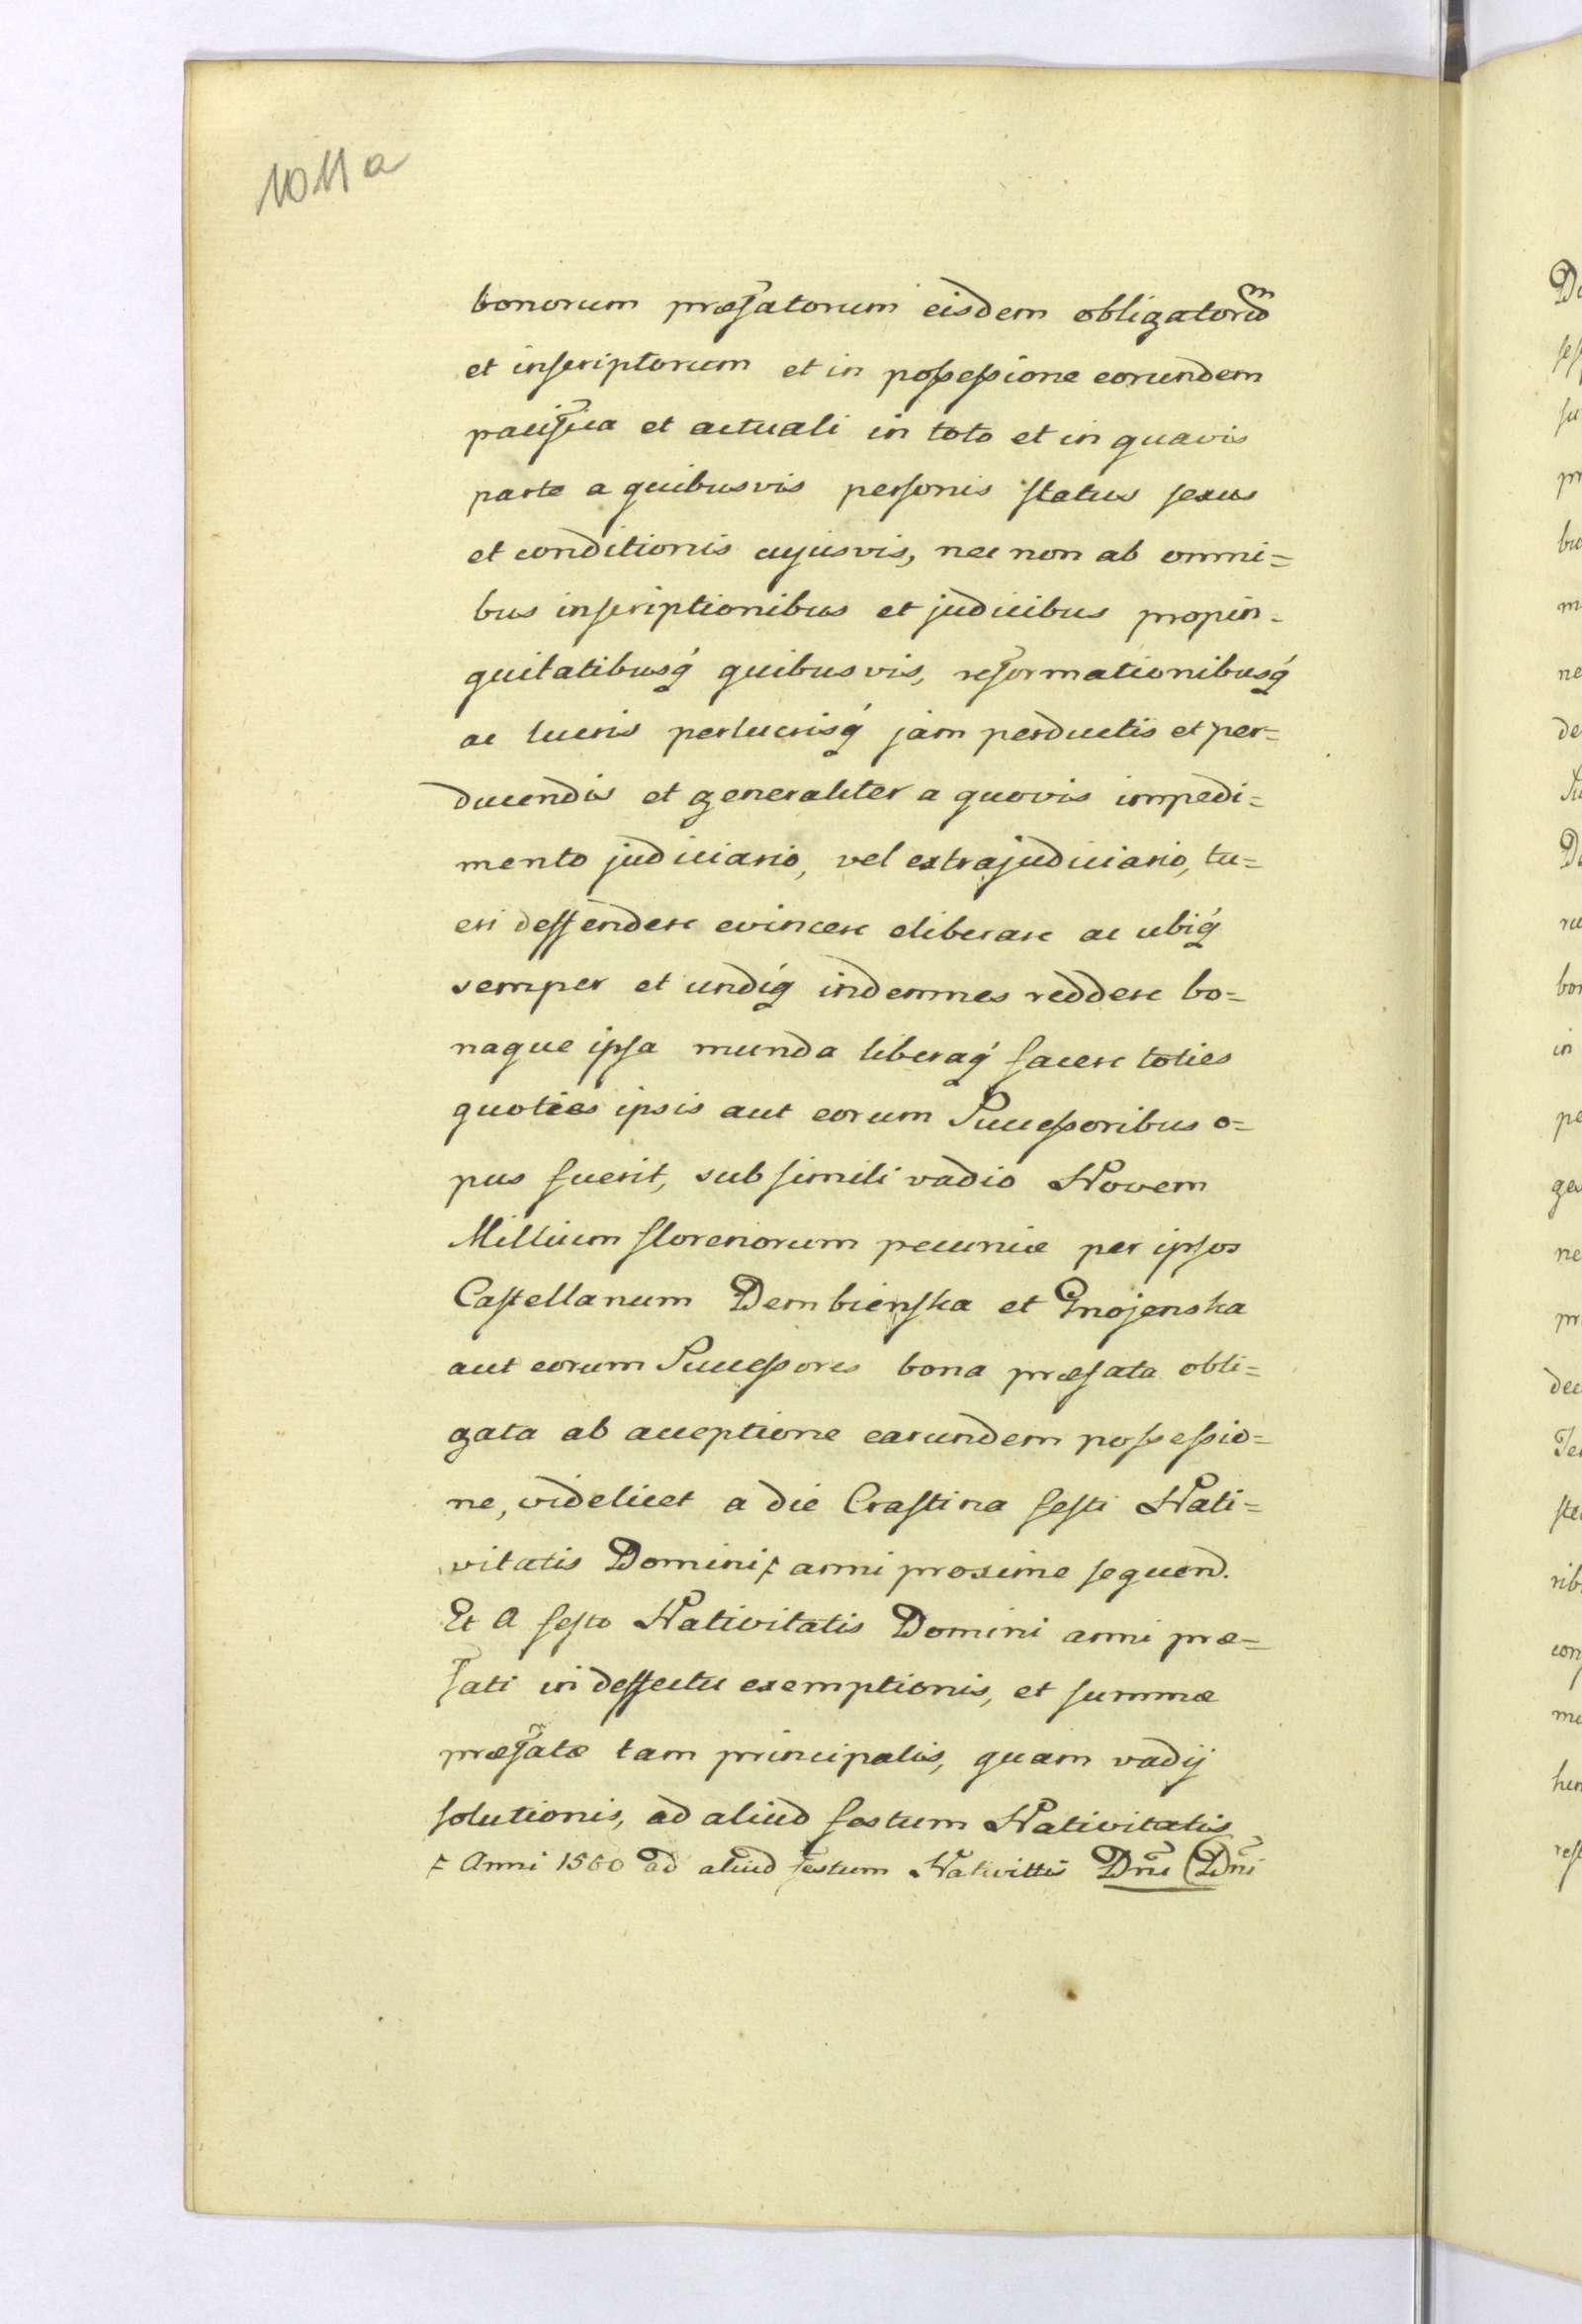 1011 a
bonorum præfatorum eisdem obligatoru͠m
et inscriptorum et in possessione eorundem
pacifica et actuali in toto et in quavis
parte a quibusvis personis status sexus
et conditionis cujusvis, nec non ab omni=
bus inscriptionibus et judicibus propin=
quitatibusq́ quibusvis, reformationibusq́
ac lucris perlucrisq́ jam perductis et per=
ducendis et generaliter a quovis impedi=
mento judiciario, vel extrajudiciario, tu=
eri deffendere evincere eliberare ac ubiq́
semper et undiq́ indemnes reddere bo=
naque ipsa munda liberaq́ facere toties
quoties ipsis aut eorum Successoribus o=
pus fuerit, sub simili vadio Novem
Millium florenorum pecuniæ per ipsos
Castellanum Dembienska et Gnojenska
aut eorum Successores bona præfata obli=
gata ab acceptione earundem possessio=
ne, videlicet a die Crastina festi Nati=
vitatis Domini ⹀ anni proxime sequend.
Et A festo Nativitatis Domini anni præ=
fati in deffectu exemptionis, et summæ
præfatæ tam principalis, quam vadij
solutionis, ad aliud festum Nativitatis
⹀ Anni 1560 ad aliud festum Nativittis Dn̄i (Dn̄i